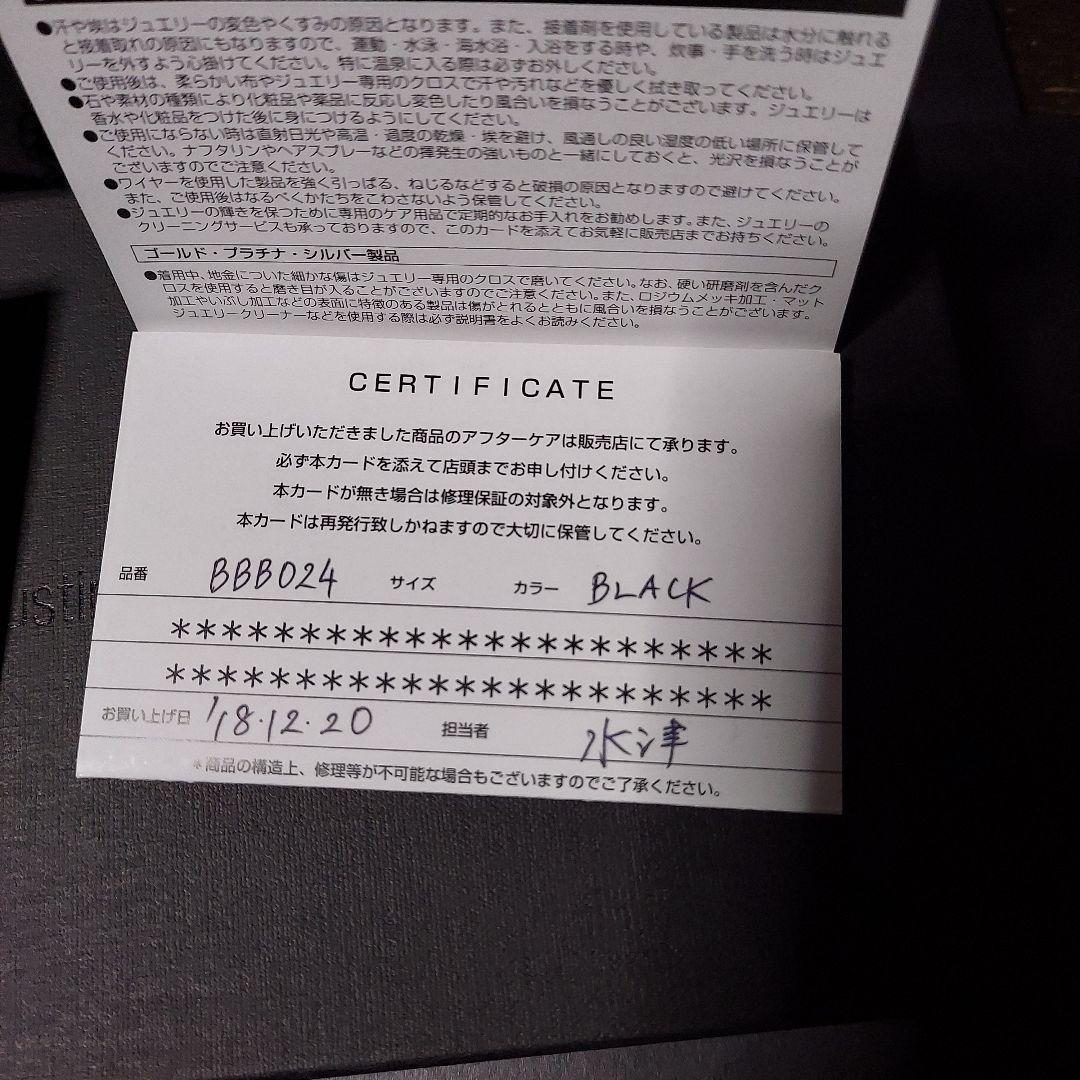 ●汗や埃はジュエリーの変色やくすみの原因となります。また、接着剤を使用している製品は水分に触れる
と接着取れの原因にもなりますので、運動・水泳・海水浴・入浴をする時や、炊事・手を洗う時はジュエ
リーを外すよう心掛けてください。特に温泉に入る際は必ずお外しください。
●ご使用後は、柔らかい布やジュエリー専用のクロスで汗や汚れなどを優しく拭き取ってください。
●石や素材の種類により化粧品や薬品に反応し変色したり風合いを損なうことがございます。ジュエリーは
香水や化粧品をつけた後に身につけるようにしてください。
●ご使用にならない時は直射日光や高温・過度の乾燥・埃を避け、風通しの良い湿度の低い場所に保管して
ください。ナフタリンやヘアスプレーなどの揮発生の強いものと一緒にしておくと、光沢を損なうことが
ございますのでご注意ください。
●ワイヤーを使用した製品を強く引っぱる、ねじるなどすると破損の原因となりますので避けてください。
また、ご使用後はなるべくかたちをこわさないよう保管してください。
●ジュエリーの輝きを保つために専用のケア用品で定期的なお手入れをお勧めします。また、ジュエリーの
クリーニングサービスも承っておりますので、このカードを添えてお気軽に販売店までお持ちください。
ゴールド・プラチナ・シルバー製品
●着用中、地金についた細かな傷はジュエリー専用のクロスで磨いてください。なお、硬い研磨剤を含んだク
ロスを使用すると磨き目が入ることがございますのでご注意ください。また、ロジウムメッキ加工・マット
加工やいぶし加工などの表面に特徴のある製品は傷がとれるとともに風合いを損なうことがございます。
ジュエリークリーナーなどを使用する際は必ず説明書をよくお読みください。
CERTIFICATE
お買い上げいただきました商品のアフターケアは販売店にて承ります。
必ず本カードを添えて店頭までお申し付けください。
本カードが無き場合は修理保証の対象外となります。
本カードは再発行致しかねますので大切に保管してください。
品番 BBB024 サイズ カラー BLACK
***********************
***********************
お買い上げ日 '18.12.20 担当者 水津
*商品の構造上、修理等が不可能な場合もございますのでご了承ください。